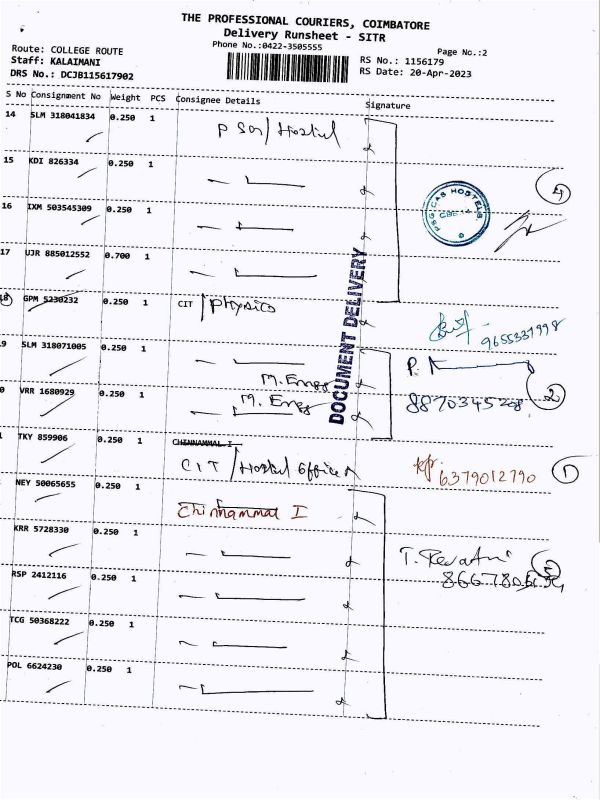 THE PROFESSIONAL COURIERS, COIMBATORE
Delivery Runsheet - SITR
Phone No.:0422-3505555
Page No.:2
Route: COLLEGE ROUTE
Staff: KALAIMANI
DRS No.: DCJB115617902
RS No.: 1156179
RS Date: 20-Apr-2023
S No Consignment No Weight PCS Consignee Details Signature
14 SLM 318041834 0.250 1
15 KDI 826334 0.250 1
16 IXM 503545309 0.250 1
PSG CAS HOSTELS
17 UJR 885012552 0.700 1
18 GPM 5230232 0.250 1 CIT / Physics
9655331998
9 SLM 318071005 0.250 1
M. Engg
0 VRR 1680929 0.250 1 M. Engg
DOCUMENT DELIVERY
TKY 859906 0.250 1 CHINNAMMAL I
CIT / Hostel office
6379012790
NEY 50065655 0.250 1 Chinnammal I
KRR 5728330 0.250 1
T. Revathi
RSP 2412116 0.250 1
TCG 50368222 0.250 1
POL 6624230 0.250 1